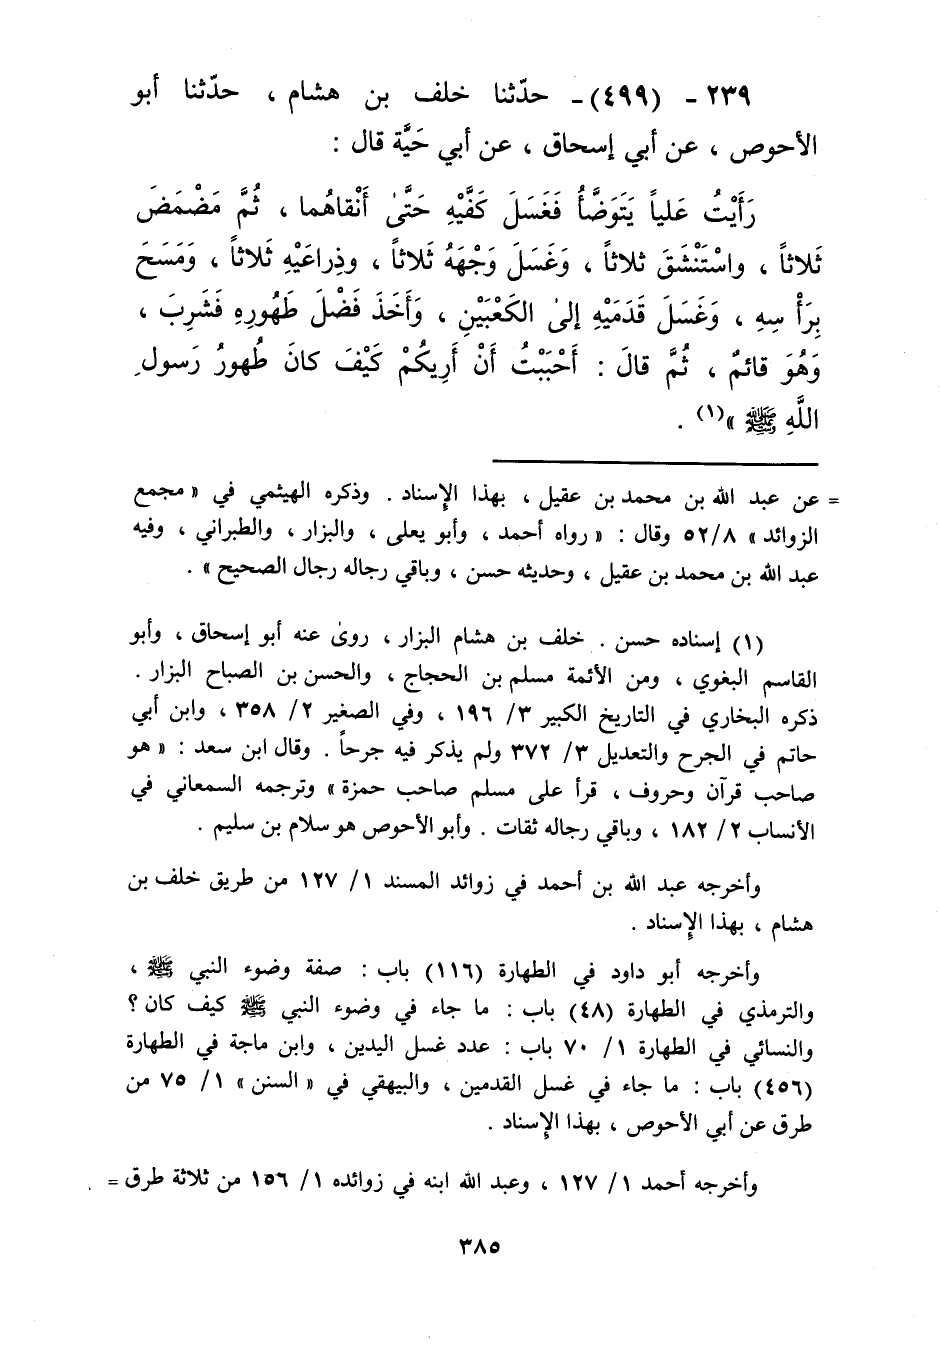 ٢٣٩ - (٤٩٩)- حدّثنا خلف بن هشام ، حدّثنا أبو
الأحوص ، عن أبي إسحاق ، عن أبي حَيَّة قال :
رَأَيْتُ عَلياً يَتَوَضَّأُ فَغَسَلَ كَفَّيْهِ حَتَّىٰ أَنْقاهُما ، ثُمَّ مَضْمَضَ
ثَلاثاً ، واسْتَنْشَقَ ثلاثاً ، وَغَسَلَ وَجْهَهُ ثَلاثاً ، وذِراعَيْهِ ثَلاثاً ، وَمَسَحَ
بِرَأْسِهِ ، وَغَسَلَ قَدَمَيْهِ إلىٰ الكَعْبَيْنِ ، وَأَخَذَ فَضْلَ طَهُورِهِ فَشَرِبَ ،
وَهُوَ قائمٌ ، ثُمَّ قالَ : أَحْبَبْتُ أَنْ أَرِيكُمْ كَيْفَ كانَ طُهورُ رَسولِ
اللَّهِ ﷺ »(١) .
= عن عبد الله بن محمد بن عقيل ، بهذا الإسناد . وذكره الهيثمي في « مجمع
الزوائد » ٥٢/٨ وقال : « رواه أحمد ، وأبو يعلى ، والبزار ، والطبراني ، وفيه
عبد الله بن محمد بن عقيل ، وحديثه حسن ، وباقي رجاله رجال الصحيح » .
(١) إسناده حسن . خلف بن هشام البزار ، روىٰ عنه أبو إسحاق ، وأبو
القاسم البغوي ، ومن الأئمة مسلم بن الحجاج ، والحسن بن الصباح البزار .
ذكره البخاري في التاريخ الكبير ٣/ ١٩٦ ، وفي الصغير ٢/ ٣٥٨ ، وابن أبي
حاتم في الجرح والتعديل ٣/ ٣٧٢ ولم يذكر فيه جرحاً . وقال ابن سعد : « هو
صاحب قرآن وحروف ، قرأ على مسلم صاحب حمزة » وترجمه السمعاني في
الأنساب ٢/ ١٨٢ ، وباقي رجاله ثقات . وأبو الأحوص هو سلام بن سليم .
وأخرجه عبد الله بن أحمد في زوائد المسند ١/ ١٢٧ من طريق خلف بن
هشام ، بهذا الإسناد .
وأخرجه أبو داود في الطهارة (١١٦) باب : صفة وضوء النبي ﷺ ،
والترمذي في الطهارة (٤٨) باب : ما جاء في وضوء النبي ﷺ كيف كان ؟
والنسائي في الطهارة ١/ ٧٠ باب : عدد غسل اليدين ، وابن ماجة في الطهارة
(٤٥٦) باب : ما جاء في غسل القدمين ، والبيهقي في « السنن » ١/ ٧٥ من
طرق عن أبي الأحوص ، بهذا الإسناد .
وأخرجه أحمد ١/ ١٢٧ ، وعبد الله ابنه في زوائده ١/ ١٥٦ من ثلاثة طرق =
٣٨٥